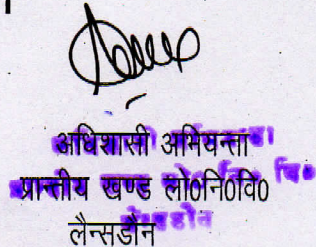 अधिशासी अभियन्ता
प्रान्तीय खण्ड लो0नि0वि0
लैन्सडौन